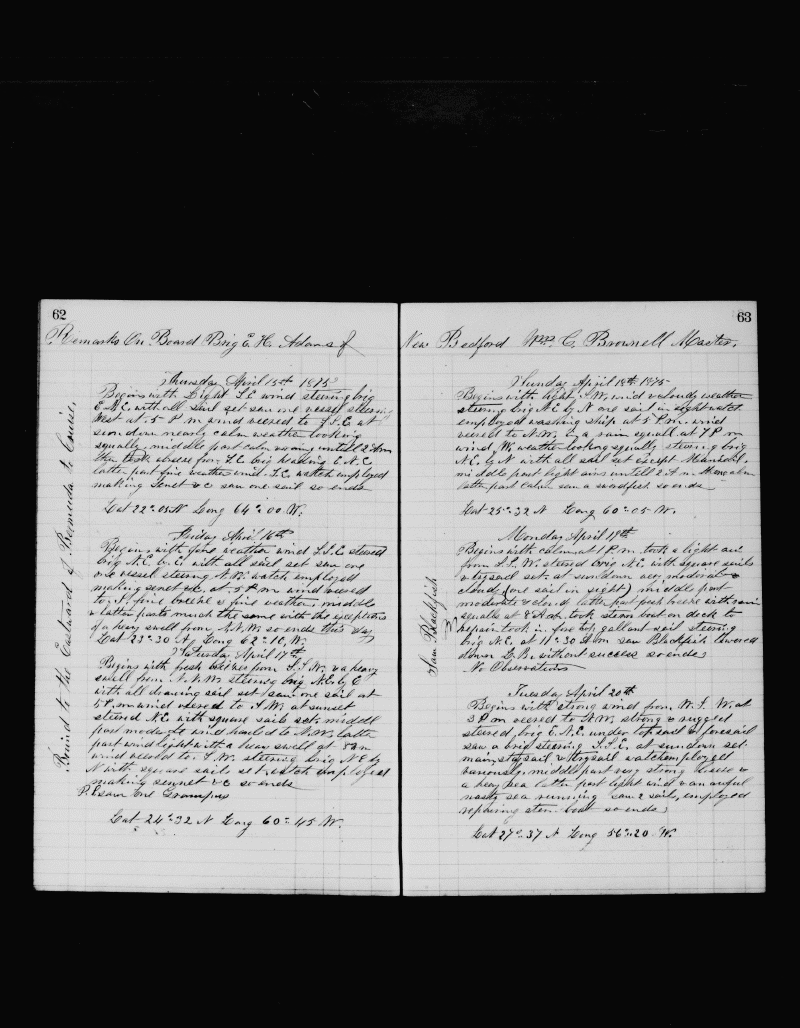 62
Remarks On Board Brig E. H. Adams of
Bound to the Eastward of Bermuda to Cruise.
Thursday April 15th 1875
Begins with Light S.E. wind steering brig
E.N.E. with all sail set saw one vessel steering
West at 5 P.M wind veered to S.S.E. at
sundown nearly calm weather looking
squally, middle part calm untill 2 Am
then took from S.E. brig heading E.N.E.
latter part fine weather wind S.E. watch employed
making Senet &c saw one sail so ends
Lat 22° 05 N Long 64° 00 W.
Friday April 16th
Begins with fine weather wind S.S.E. steered
brig N.E. by E. with all sail set saw one
one vessel steering N.W. watch employed
making senet &c. at 5 P.M wind veered
to S. fine breeze & fine weather, middle
& latter parts much the same with the exception
of a heavy swell from N.N.W. so ends this day
Lat 23° 30 N Long 62° 10 W.
Saturday April 17th
Begins with fresh breezes from S.S.W. & a heavy
swell from N.N.W. steering brig N.E. by E
with all drawing sail set saw one sail at
5 P.M wind veered to S.W. at sunset
steered N.E. with square sails set middle
part moderate wind hauled to N.W. latter
part wind light with a heavy swell at 8 Am
wind veered to S.W. steering brig N.E. by
N with square sails set watch employed
making sennet &c so ends
P.S. saw one Grampus
Lat 24° 32 N Long 60° 45 W.
63
New Bedford Wm. C. Brownell Master.
Sunday April 18th 1875
Begins with light S.W. wind & cloudy weather
steering brig N.E. by N one sail in sight watch
employed washing ship at 5 P.M. wind
veered to N.W. by a rain squall at 7 P m
wind W. weather looking squally steering brig
N.E. by N with all sail set except Mainsail.
middle part light airs untill 2 A m then calm
latter part calm saw a swordfish so ends
Lat 25° 32 N Long 60° 05 W.
Monday April 19th
Saw Blackfish
Begins with calm at 1 P.m. took a light air
from S.S.W. steered brig N.E. with square sails
& trysail set at sundown very moderate &
cloudy (one sail in sight) middle part
moderate & cloudy latter part fresh breeze with rain
squalls at 8 A.m. took stern boat on deck to
repair took in fore top gallant sail steering
brig N.E. at 11° 30 A m saw Blackfish lowered
down L.B. without success so ends
No Observations
Tuesday April 20th
Begins with strong wind from W.S.W. at
3 P m veered to N.W. strong & rugged
steered brig E.N.E. under topsail & foresail
saw a brig steering S.S.E. at sundown set
main staysail & trysail watch employed
variously, middle part very strong breeze &
a heavy sea latter part light wind & an awful
nasty sea running saw 2 sails, employed
repairing stern boat so ends
Lat 27° 37 N Long 56° 20 W.